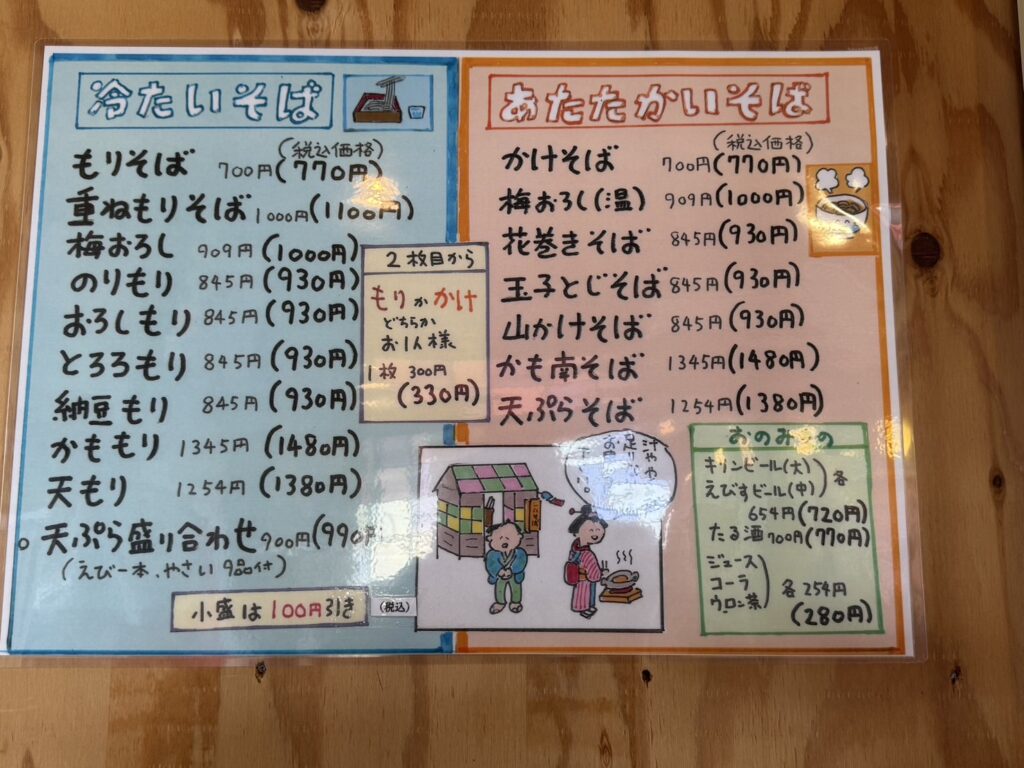 冷たいそば
(税込価格)
もりそば 700円(770円)
重ねもりそば 1000円(1100円)
梅おろし 909円(1000円)
のりもり 845円(930円)
おろしもり 845円(930円)
とろろもり 845円(930円)
納豆もり 845円(930円)
かももり 1345円(1480円)
天もり 1254円(1380円)
天ぷら盛り合わせ 900円(990円
(えび一本、やさい9品付)
小盛は100円引き
(税込)
2枚目から
もりかかけ
どちらか
お1人様
1枚 300円
(330円)
あたたかいそば
(税込価格)
かけそば 700円(770円)
梅おろし(温) 909円(1000円)
花巻きそば 845円(930円)
玉子とじそば 845円(930円)
山かけそば 845円(930円)
かも南そば 1345円(1480円)
天ぷらそば 1254円(1380円)
汁やや
おのみもの
キリンビール(大)
えびすビール(中)
各
654円(720円)
たる酒 700円(770円)
ジュース
コーラ
ウーロン茶
各254円
(280円)